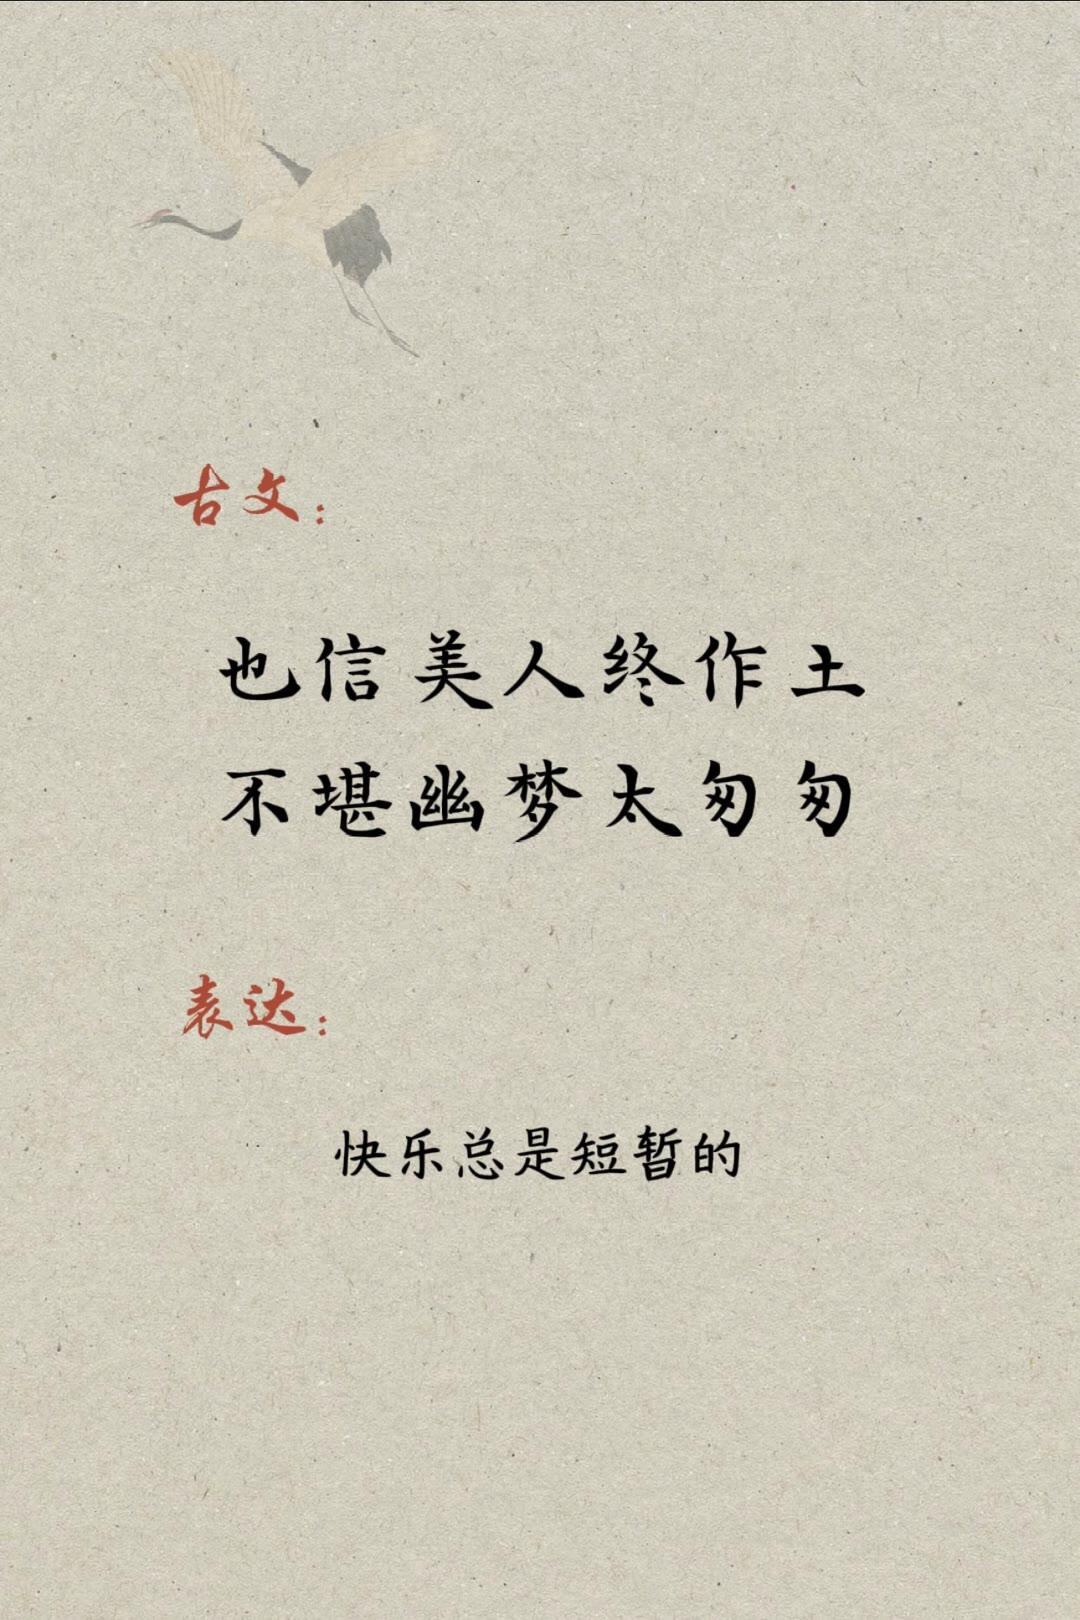 古文：
也信美人终作土
不堪幽梦太匆匆
表达：
快乐总是短暂的